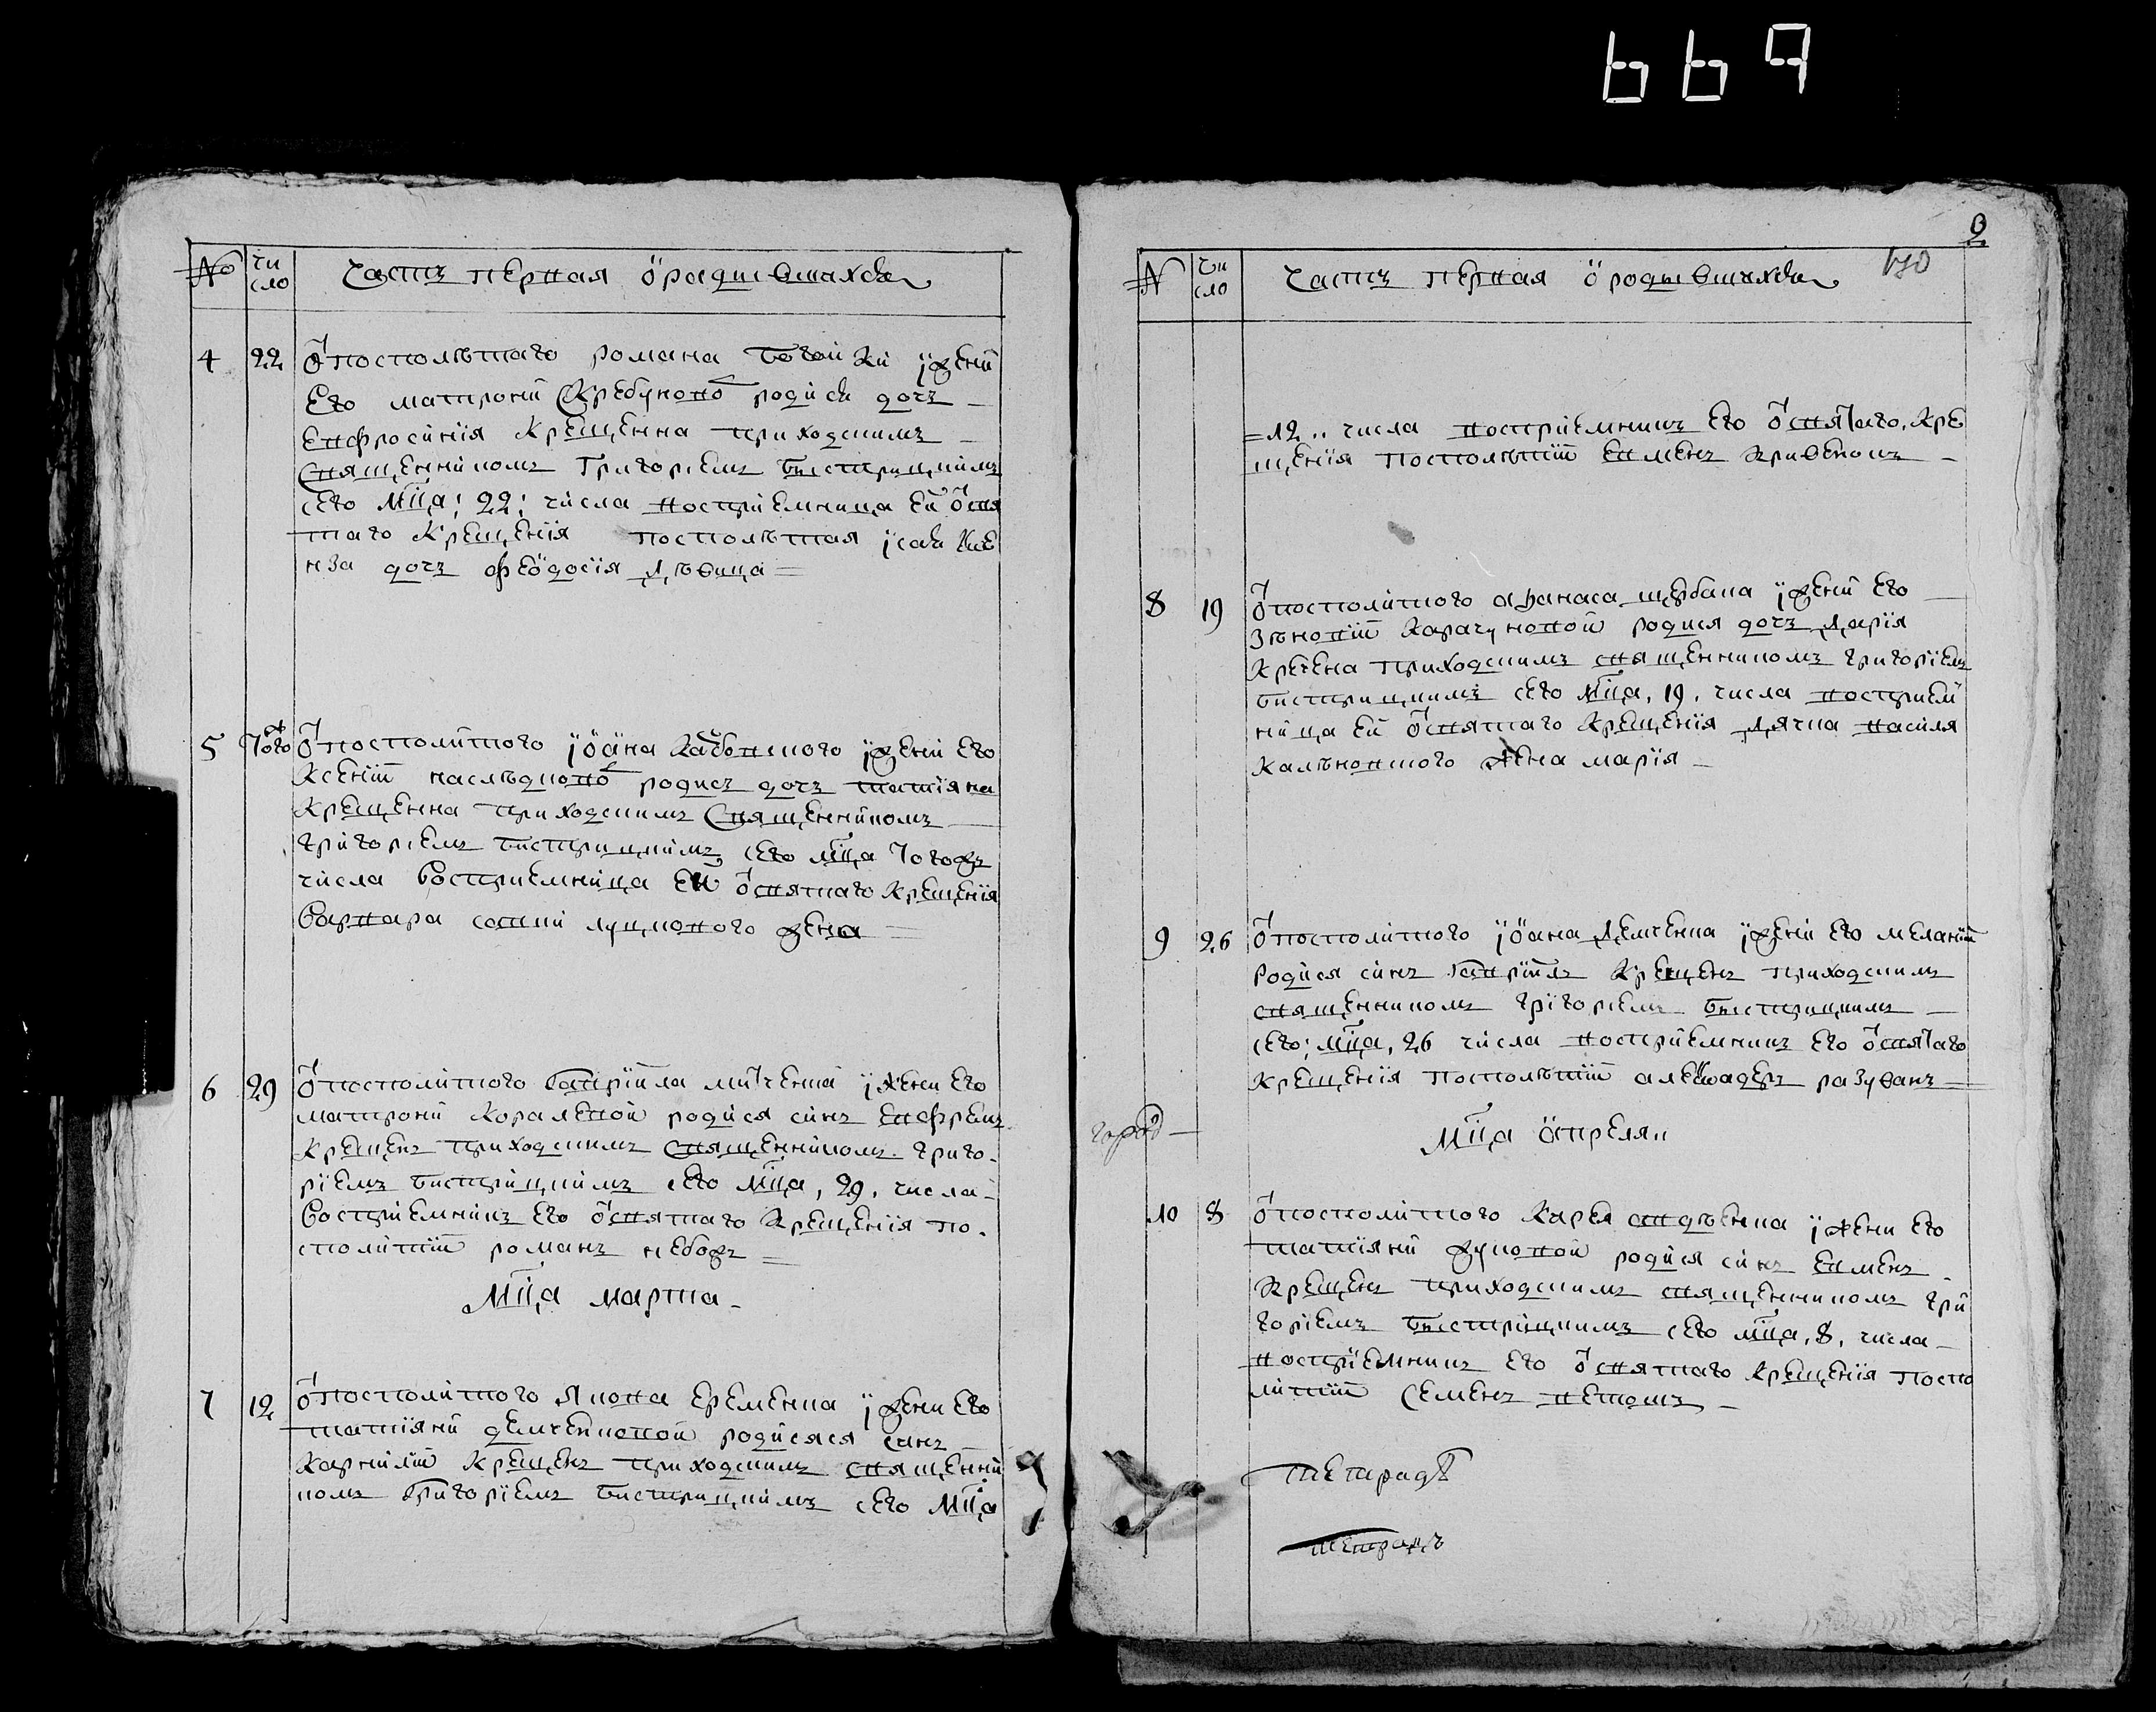 669
№ чи
сло Часть первая о родившихся
4 22 У посполѣтаго романа и жени
Его матрони родися дочь
Евфросинiя Крещенна приходскимъ
Священникомъ Григорiемъ Бистрицкимъ
сего мца: 22: числа восприемница ей ѿ свя
таго Крещенiя посполѣтая
дочь феодосiя дѣвица
5 Того ж У посполитого iоана и жени его
Ксенiи родись дочь татiяна
Крещенна приходскимъ Священникомъ
григорiемъ бистрицкимъ сего мца тогожъ
числа Восприемница ей ѿ святаго Крещенiя
Варвара жена
6 29 У посполитого Гаврiила и жени его
матрони Королевой родися синъ Евфремъ
Крещенъ приходскимъ Священникомъ григо
рiемъ бистрицкимъ сего мца, 29, числа
Восприемникъ его ѿ святаго Крещенiя по
сполитiй романъ небожъ
Мца марта
7 12 У посполитого Якова Еременка и жени его
татiяни демченковой родисяся синъ
Карнилiй Крещенъ приходскимъ священни
комъ Григорiемъ бистрицкимъ сего мца
9
670
№ чи
сло Часть первая о родившихся
=12.. числа восприемникъ его ѿ святаго Кре
щенiя посполѣтiй Евменъ Кривенокъ
8 19 У посполитого афанаса щербака и жени его
Зѣновiи Карачуновой родися дочь дарiя
Крещена приходскимъ священникомъ григорiемъ
бистрицкимъ сего мца, 19, числа воспрiем
ница ей ѿ святаго Крещенiя дячка василя
жена марiя
9 26 У посполитого iоана демченка и жени его меланiи
родися синъ Гаврiилъ Крещенъ приходскимъ
священникомъ григорiемъ бистрицкимъ
сего: мца, 26 числа восприемникъ его ѿ святаго
Крещенiя посполѣтiй алеѯадръ разуванъ
Мца априля..
10 8 У посполитого Карпа и жени его
татiяни жуковой родися синъ Евменъ
Крещенъ приходскимъ священникомъ гри
горiемъ бистрицкимъ сего мца, 8, числа
воспрiемникъ его ѿ святаго Крещенiя поспо
литiй Семенъ